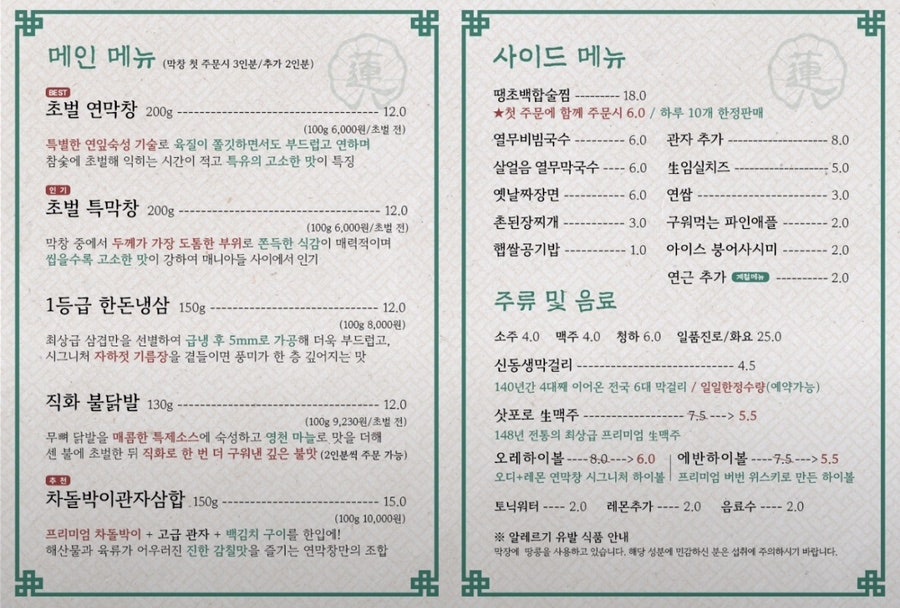 메인 메뉴 (막창 첫 주문시 3인분/추가 2인분)
蓮
BEST
초벌 연막창 200g ---------- 12.0
(100g 6,000원/초벌 전)
특별한 연잎숙성 기술로 육질이 쫄깃하면서도 부드럽고 연하며
참숯에 초벌해 익히는 시간이 적고 특유의 고소한 맛이 특징
인기
초벌 특막창 200g ---------- 12.0
(100g 6,000원/초벌 전)
막창 중에서 두께가 가장 도톰한 부위로 쫀득한 식감이 매력적이며
씹을수록 고소한 맛이 강하여 매니아들 사이에서 인기
1등급 한돈냉삼 150g ---------- 12.0
(100g 8,000원)
최상급 삼겹만을 선별하여 급냉 후 5mm로 가공해 더욱 부드럽고,
시그니처 자하젓 기름장을 곁들이면 풍미가 한 층 깊어지는 맛
직화 불닭발 130g ---------- 12.0
(100g 9,230원/초벌 전)
무뼈 닭발을 매콤한 특제소스에 숙성하고 영천 마늘로 맛을 더해
센 불에 초벌한 뒤 직화로 한 번 더 구워낸 깊은 불맛 (2인분씩 주문 가능)
추천
차돌박이관자삼합 150g ---------- 15.0
(100g 10,000원)
프리미엄 차돌박이 + 고급 관자 + 백김치 구이를 한입에!
해산물과 육류가 어우러진 진한 감칠맛을 즐기는 연막창만의 조합
사이드 메뉴
蓮
땡초백합술찜 --------- 18.0
★첫 주문에 함께 주문시 6.0 / 하루 10개 한정판매
열무비빔국수 -------- 6.0
살얼음 열무막국수 ---- 6.0
옛날짜장면 ---------- 6.0
촌된장찌개 ---------- 3.0
햅쌀공기밥 ---------- 1.0
관자 추가 ---------- 8.0
生임실치즈 ---------- 5.0
연쌈 ---------- 3.0
구워먹는 파인애플 ------- 2.0
아이스 붕어사시미 ------- 2.0
연근 추가 계절메뉴 ---------- 2.0
주류 및 음료
소주 4.0 맥주 4.0 청하 6.0 일품진로/화요 25.0
신동생막걸리 ---------- 4.5
140년간 4대째 이어온 전국 6대 막걸리 / 일일한정수량(예약가능)
삿포로 生맥주 ---------- 7.5 ---> 5.5
148년 전통의 최상급 프리미엄 生맥주
오레하이볼 ----8.0---> 6.0
오디+레몬 연막창 시그니처 하이볼
에반하이볼 ----7.5---> 5.5
프리미엄 버번 위스키로 만든 하이볼
토닉워터 ---- 2.0 레몬추가 ---- 2.0 음료수 ---- 2.0
※ 알레르기 유발 식품 안내
막장에 땅콩을 사용하고 있습니다. 해당 성분에 민감하신 분은 섭취에 주의하시기 바랍니다.